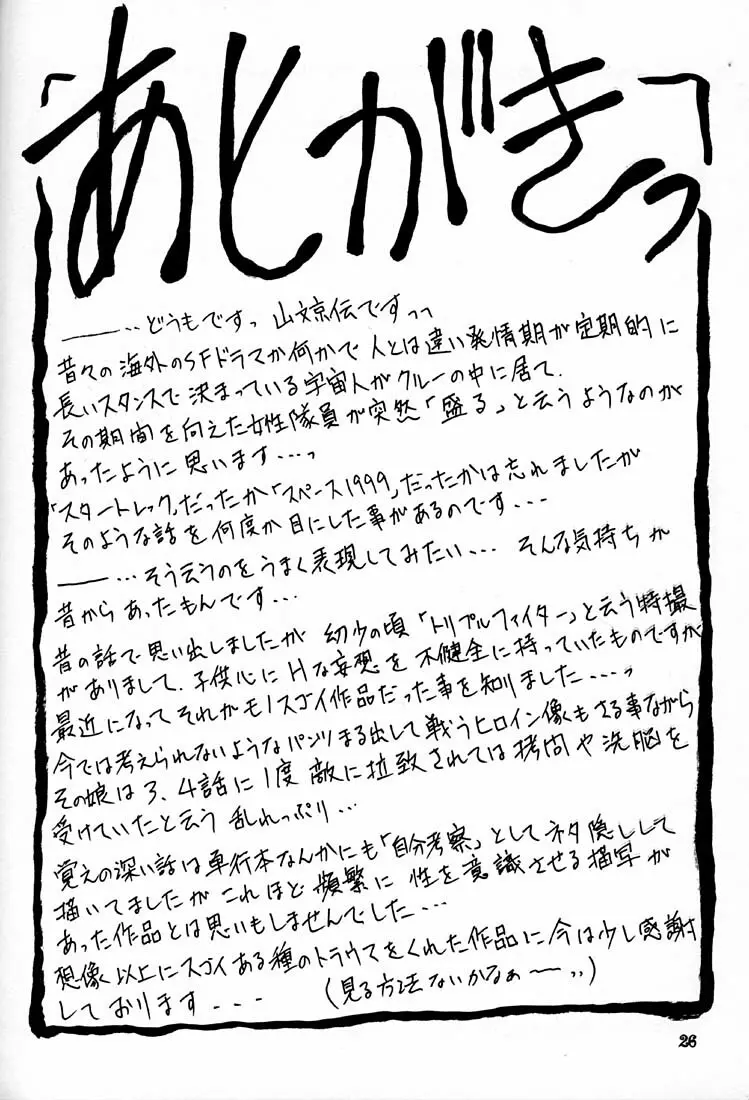 「あとがきっ」
――‥どうもですっ 山文京伝ですっっ
昔々の海外のSFドラマか何かで人とは違い発情期が定期的に
長いスタンスで決まっている宇宙人がクルーの中に居て.
その期間を向えた女性隊員が突然「盛る」と云うようなのが
あったように思います…っ
「スタートレック」だったか「スペース1999」だったかは忘れましたが
そのような話を何度か目にした事があるのです・・・
――…そう云うのをうまく表現してみたい… そんな気持ちが
昔からあったもんです…
昔の話で思い出しましたが 幼少の頃「トリプルファイター」と云う特撮
がありまして.子供心にHな妄想を不健全に持っていたものですが
最近になってそれがモノスゴイ作品だった事を知りました・・・・っ
今では考えられないようなパンツまる出しで戦うヒロイン像もさる事ながら
その娘は3、4話に1度敵に拉致されては拷問や洗脳を
受けていたと云う乱れっぷり…
覚えの深い話は単行本なんかにも「自分考察」としてネタ隠しして
描いてましたがこれほど頻繁に性を意識させる描写が
あった作品とは思いもしませんでした…
想像以上にスゴイある種のトラウマをくれた作品に今は少し感謝
しております・・・ (見る方法ないかなぁー‥)
26